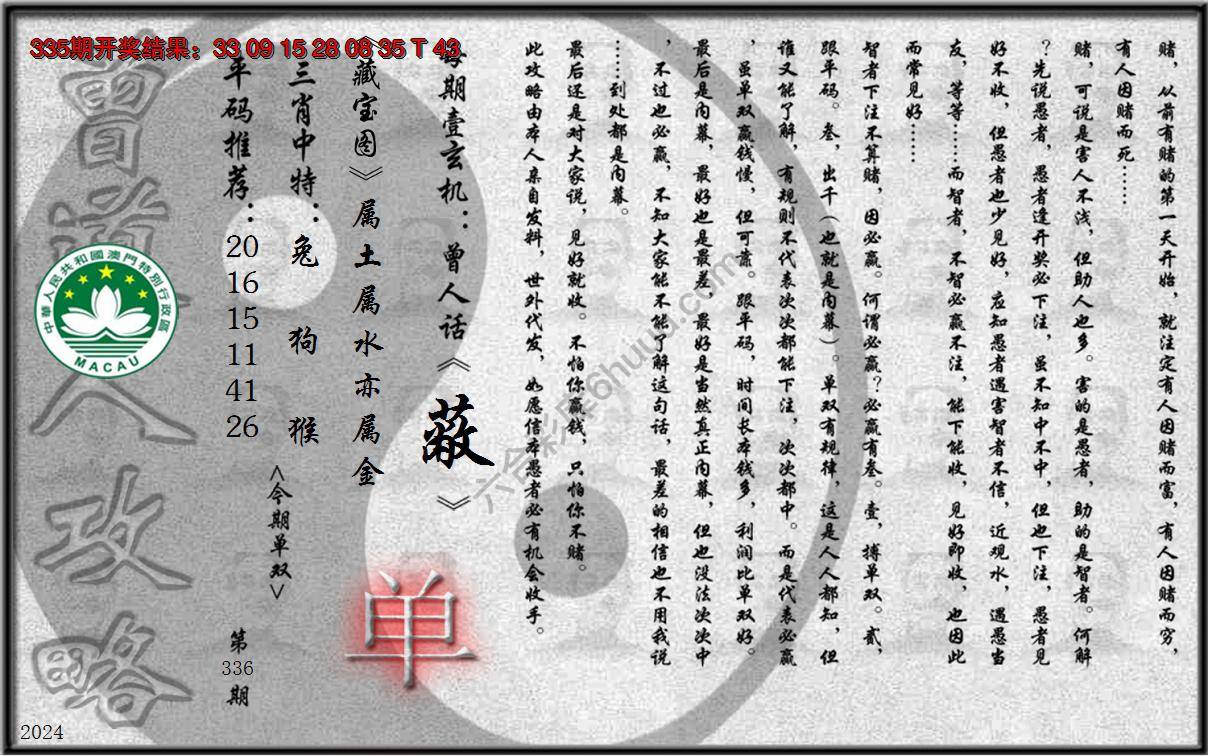 335期开奖结果：33 09 15 28 08 35 T 43
赌，从前有赌的第一天开始，就注定有人因赌而富，有人因赌而穷，
有人因赌而死……
赌，可说是害人不浅，但助人也多。害的是愚者，助的是智者。何解
？先说愚者，愚者逢开奖必下注，虽不知中不中，但也下注，愚者见
好不收，但愚者也少见好，应知愚者遇害智者不信，近观水，遇愚当
友，等等……而智者，不智必赢不注，能下能收，见好即收，也因此
而常见好……
智者下注不算赌，因必赢。何谓必赢？必赢有叁。壹，搏单双。贰，
跟平码。叁，出千（也就是内幕）。单双有规律，这是人人都知，但
谁又能了解，有规则不代表次次都能下注，次次都中。而是代表必赢
，虽单双赢钱慢，但可靠。跟平码，时间长本钱多，利润比单双好。
最后是内幕，最好也是最差，最好是当然真正内幕，但也没法次次中
，不过也必赢，不知大家能不能了解这句话，最差的相信也不用我说
……到处都是内幕。
最后还是对大家说，见好就收。不怕你赢钱，只怕你不赌。
此攻略由本人亲自发料，世外代发，如愿信本愚者必有机会收手。
每期壹玄机：曾人话《蔽》
《藏宝图》属土属水亦属金
三肖中特：兔 狗 猴
平码推荐：20 16 15 11 41 26
<今期单双>
单
第336期
曾道人攻略
中華人民共和國澳門特別行政區
MACAU
2024